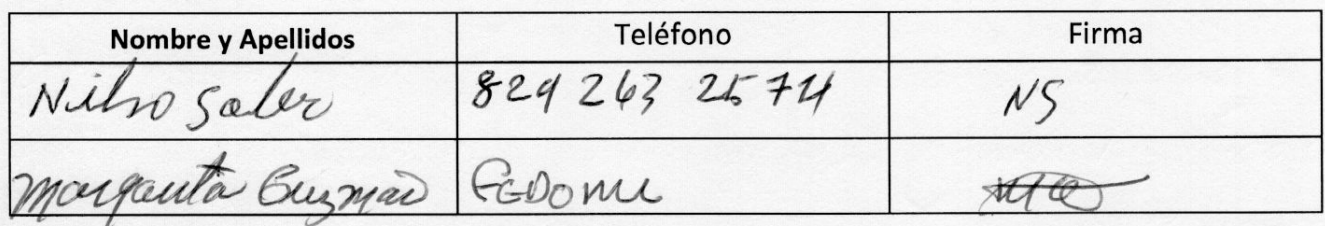 Nombre y Apellidos Teléfono Firma
Nilso Soler 829 263 2574 NS
Margarita Guzmán FEDOMU